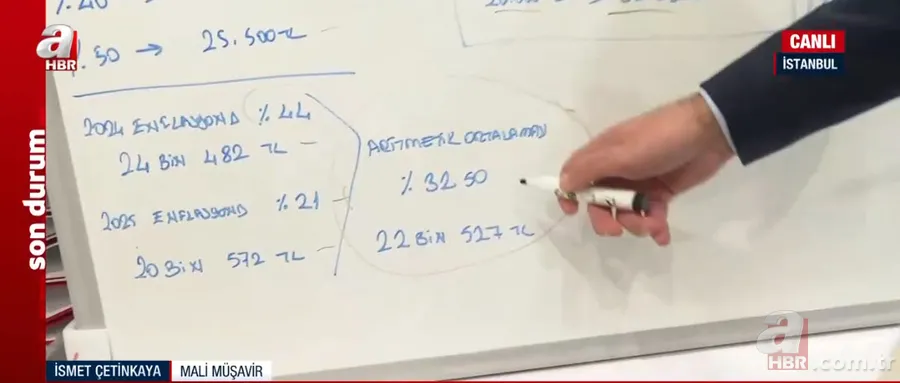 %.40
%.50 → 25.500 TL
2024 ENFLASYONU %44
24 BİN 482 TL
2025 ENFLASYONU %21
20 BİN 572 TL
ARİTMETİK ORTALAMASI
% 32 50
22 BİN 527 TL
a
HBR
son durum
CANLI
İSTANBUL
İSMET ÇETİNKAYA
MALİ MÜŞAVİR
a
HBR.com.tr